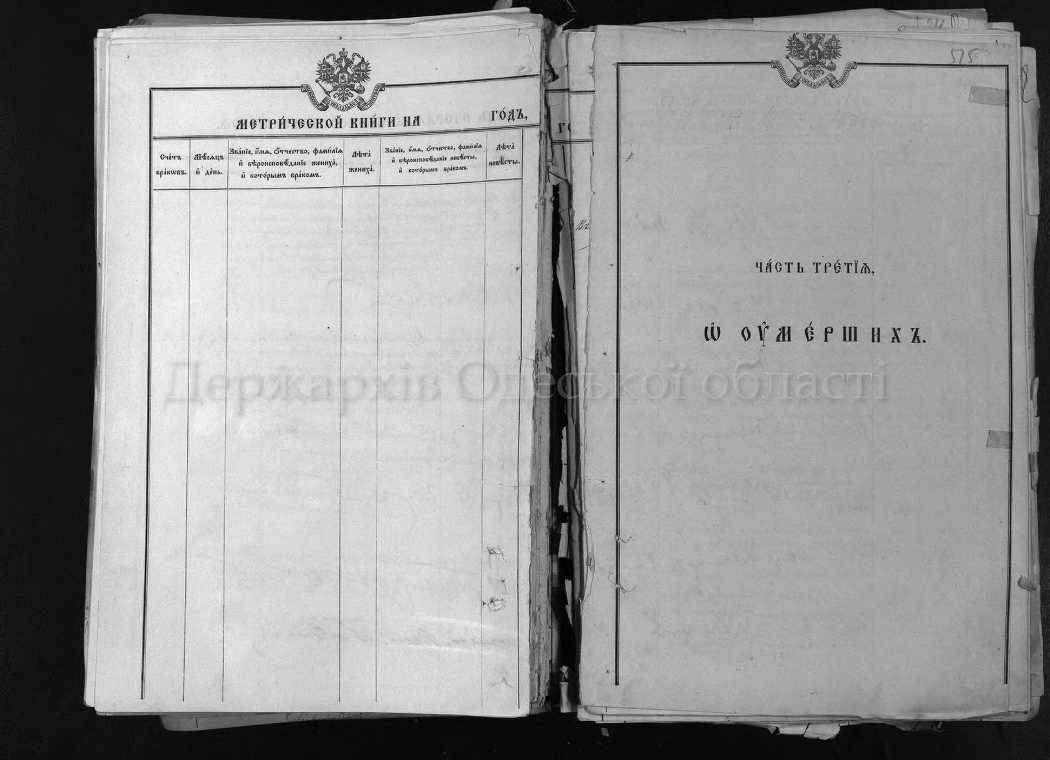 МЕТРИ́ЧЕСКОЙ КНИ́ГИ НА ГО́ДЪ,
Сче́тъ бра́кѡвъ.
Мѣ́сяцъ и҆ де́нь.
Зва́нїе, и҆́мя, ѻ҆́тчество, фами́лїя
и҆ вѣроисповѣ́данїе жениха̀,
и҆ кото́рымъ бра́комъ.
Лѣ́та жениха̀.
Зва́нїе, и҆́мя, ѻ҆́тчество, фами́лїя
и҆ вѣроисповѣ́данїе невѣ́сты,
и҆ кото́рымъ бра́комъ.
Лѣ́та невѣ́сты.
515
ЧА́СТЬ ТРЕ́ТЇѦ,
Ѡ҆ ОУ҆МЕ́РШИХЪ.
Держархів Одеської області